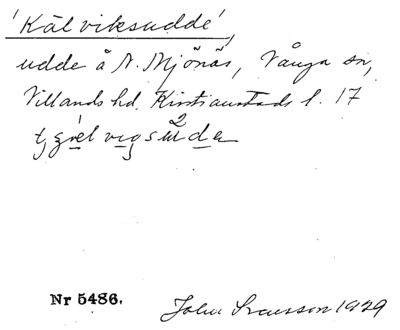 'Kälviksudde',
udde å N. Mjönäs, Vånga sn,
Villands hd, Kristianstads l. 17
Nr 5486.
John Svensson 1929